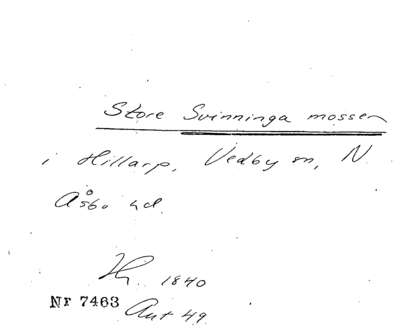 Store Svinninga mossen
i Hillarp, Vedby sn, N
Åsbo hd.
1840
Nr 7463
Ant 49.